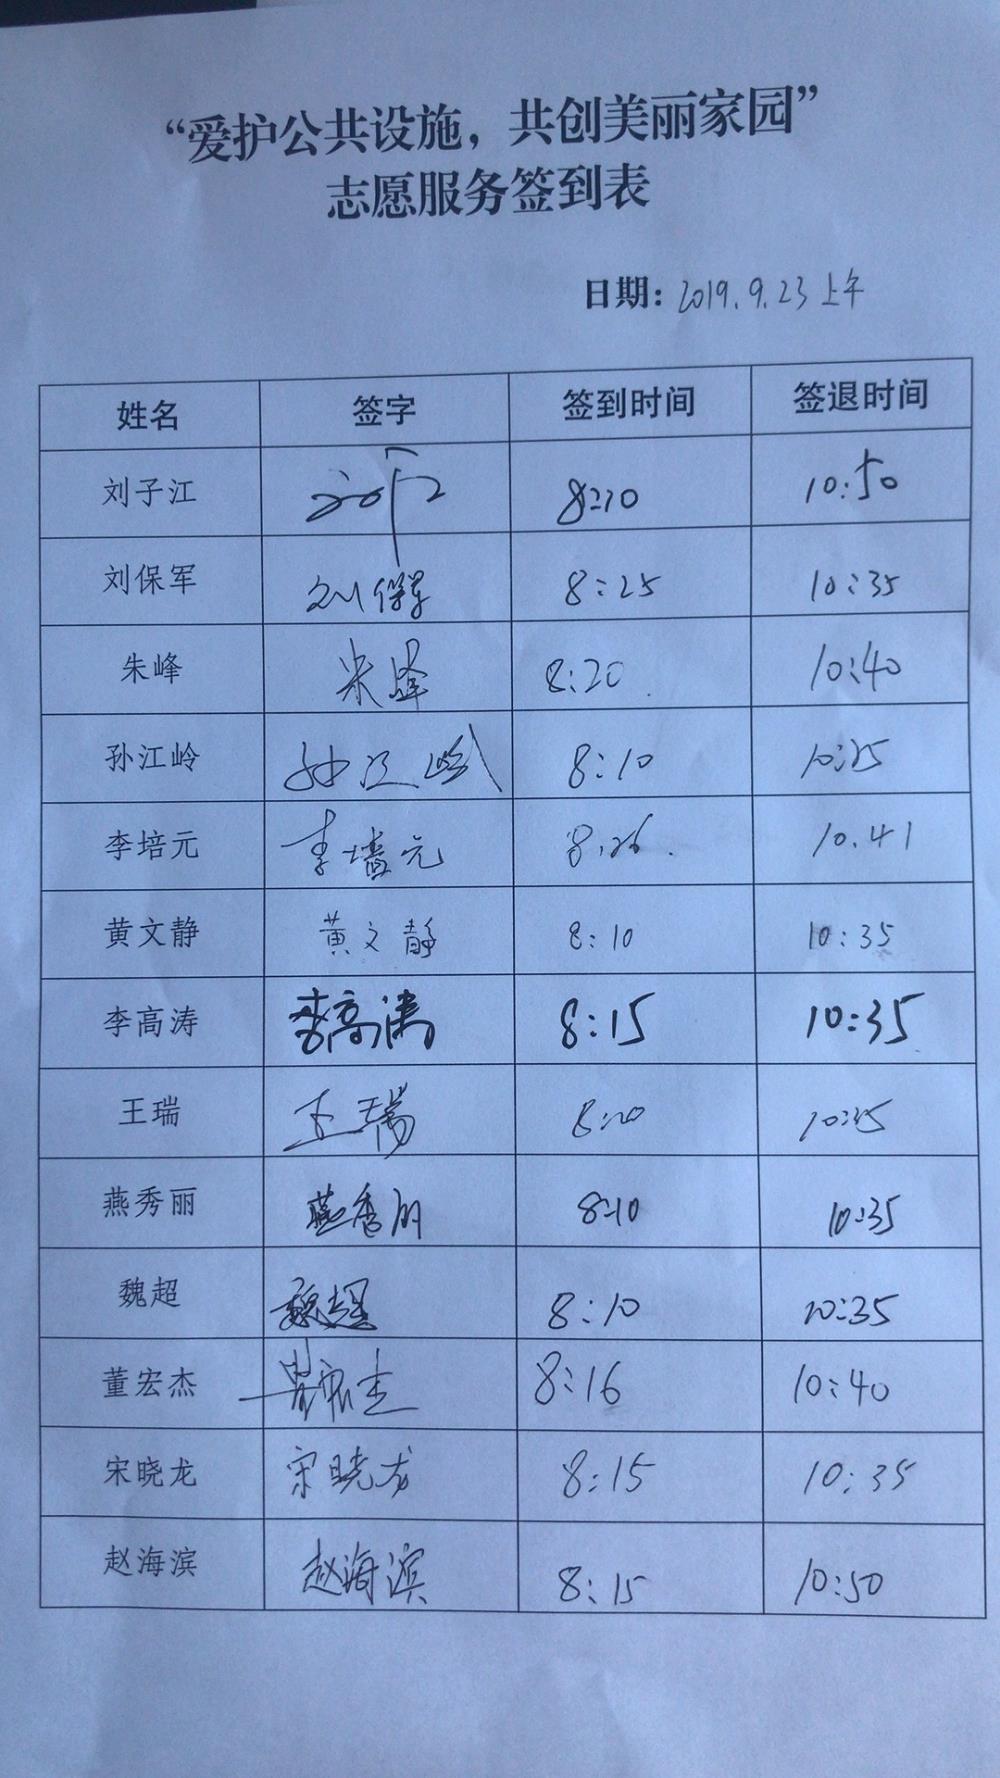 “爱护公共设施，共创美丽家园”
志愿服务签到表
日期：2019.9.23 上午
姓名 签字 签到时间 签退时间
刘子江 8:10 10:50
刘保军 刘保军 8:25 10:35
朱峰 朱峰 8:20 10:40
孙江岭 孙江岭 8:10 10:25
李培元 李培元 8:26 10.41
黄文静 黄文静 8:10 10:35
李高涛 李高涛 8:15 10:35
王瑞 王瑞 8:20
燕秀丽 燕秀丽 8:10 10:35
魏超 魏超 8:10 10:35
董宏杰 董宏杰 8:16 10:40
宋晓龙 宋晓龙 8:15 10:35
赵海滨 赵海滨 8:15 10:50